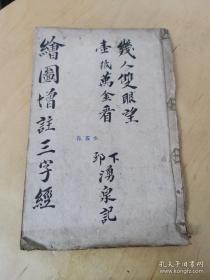 幾人雙眼望
壹紙萬金看
下
邳
湧泉記
繪圖增註三字經